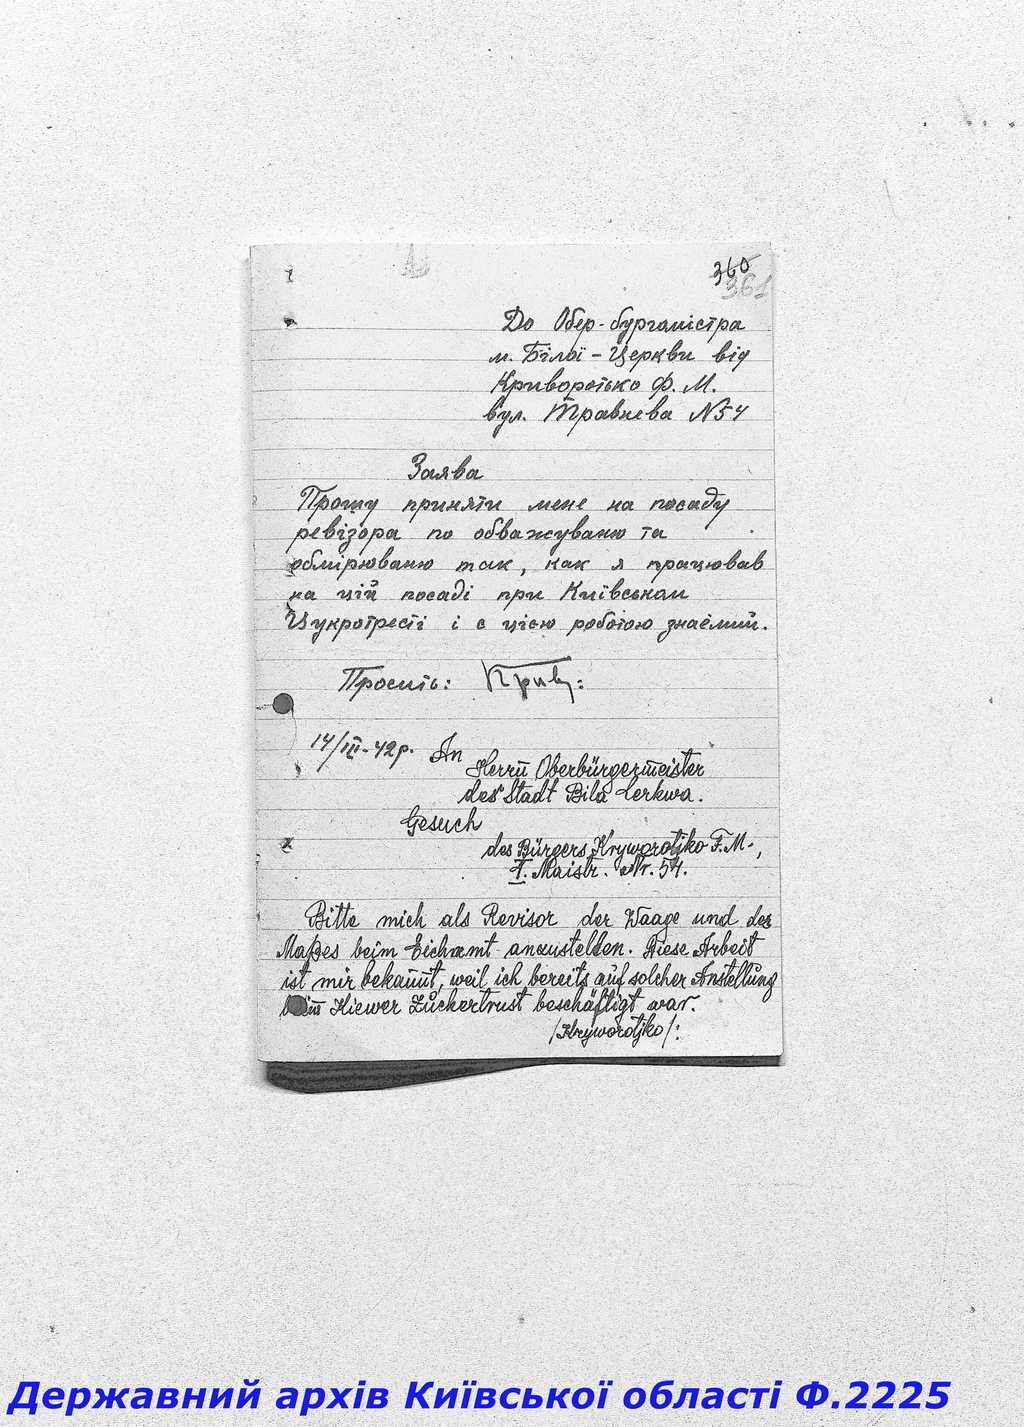 360
361
До Обер-бургамістра
м. Білої-Церкви від
Криворотько Ф. М.
вул. Травнева №54
Заява
Прошу приняти мене на посаду
ревізора по обважуваню та
обмірюваню так, как я працював
на цій посаді при Київськом
Цукротресті і с цією роботою знаёмий.
Просить: Крив:
14/III-42р. An
Herrn Oberbürgermeister
des Stadt Bila Cerkwa.
Gesuch
des Bürgers Kryworotjko F. M.,
1. Maistr. Nr. 54.
Bitte mich als Revisor der Waage und des
Maßes beim Eichamt anzustellen. Diese Arbeit
ist mir bekannt, weil ich bereits auf solcher Anstellung
beim Kiewer Zuckertrust beschäftigt war.
/Kryworotjko/:
Державний архів Київської області Ф.2225